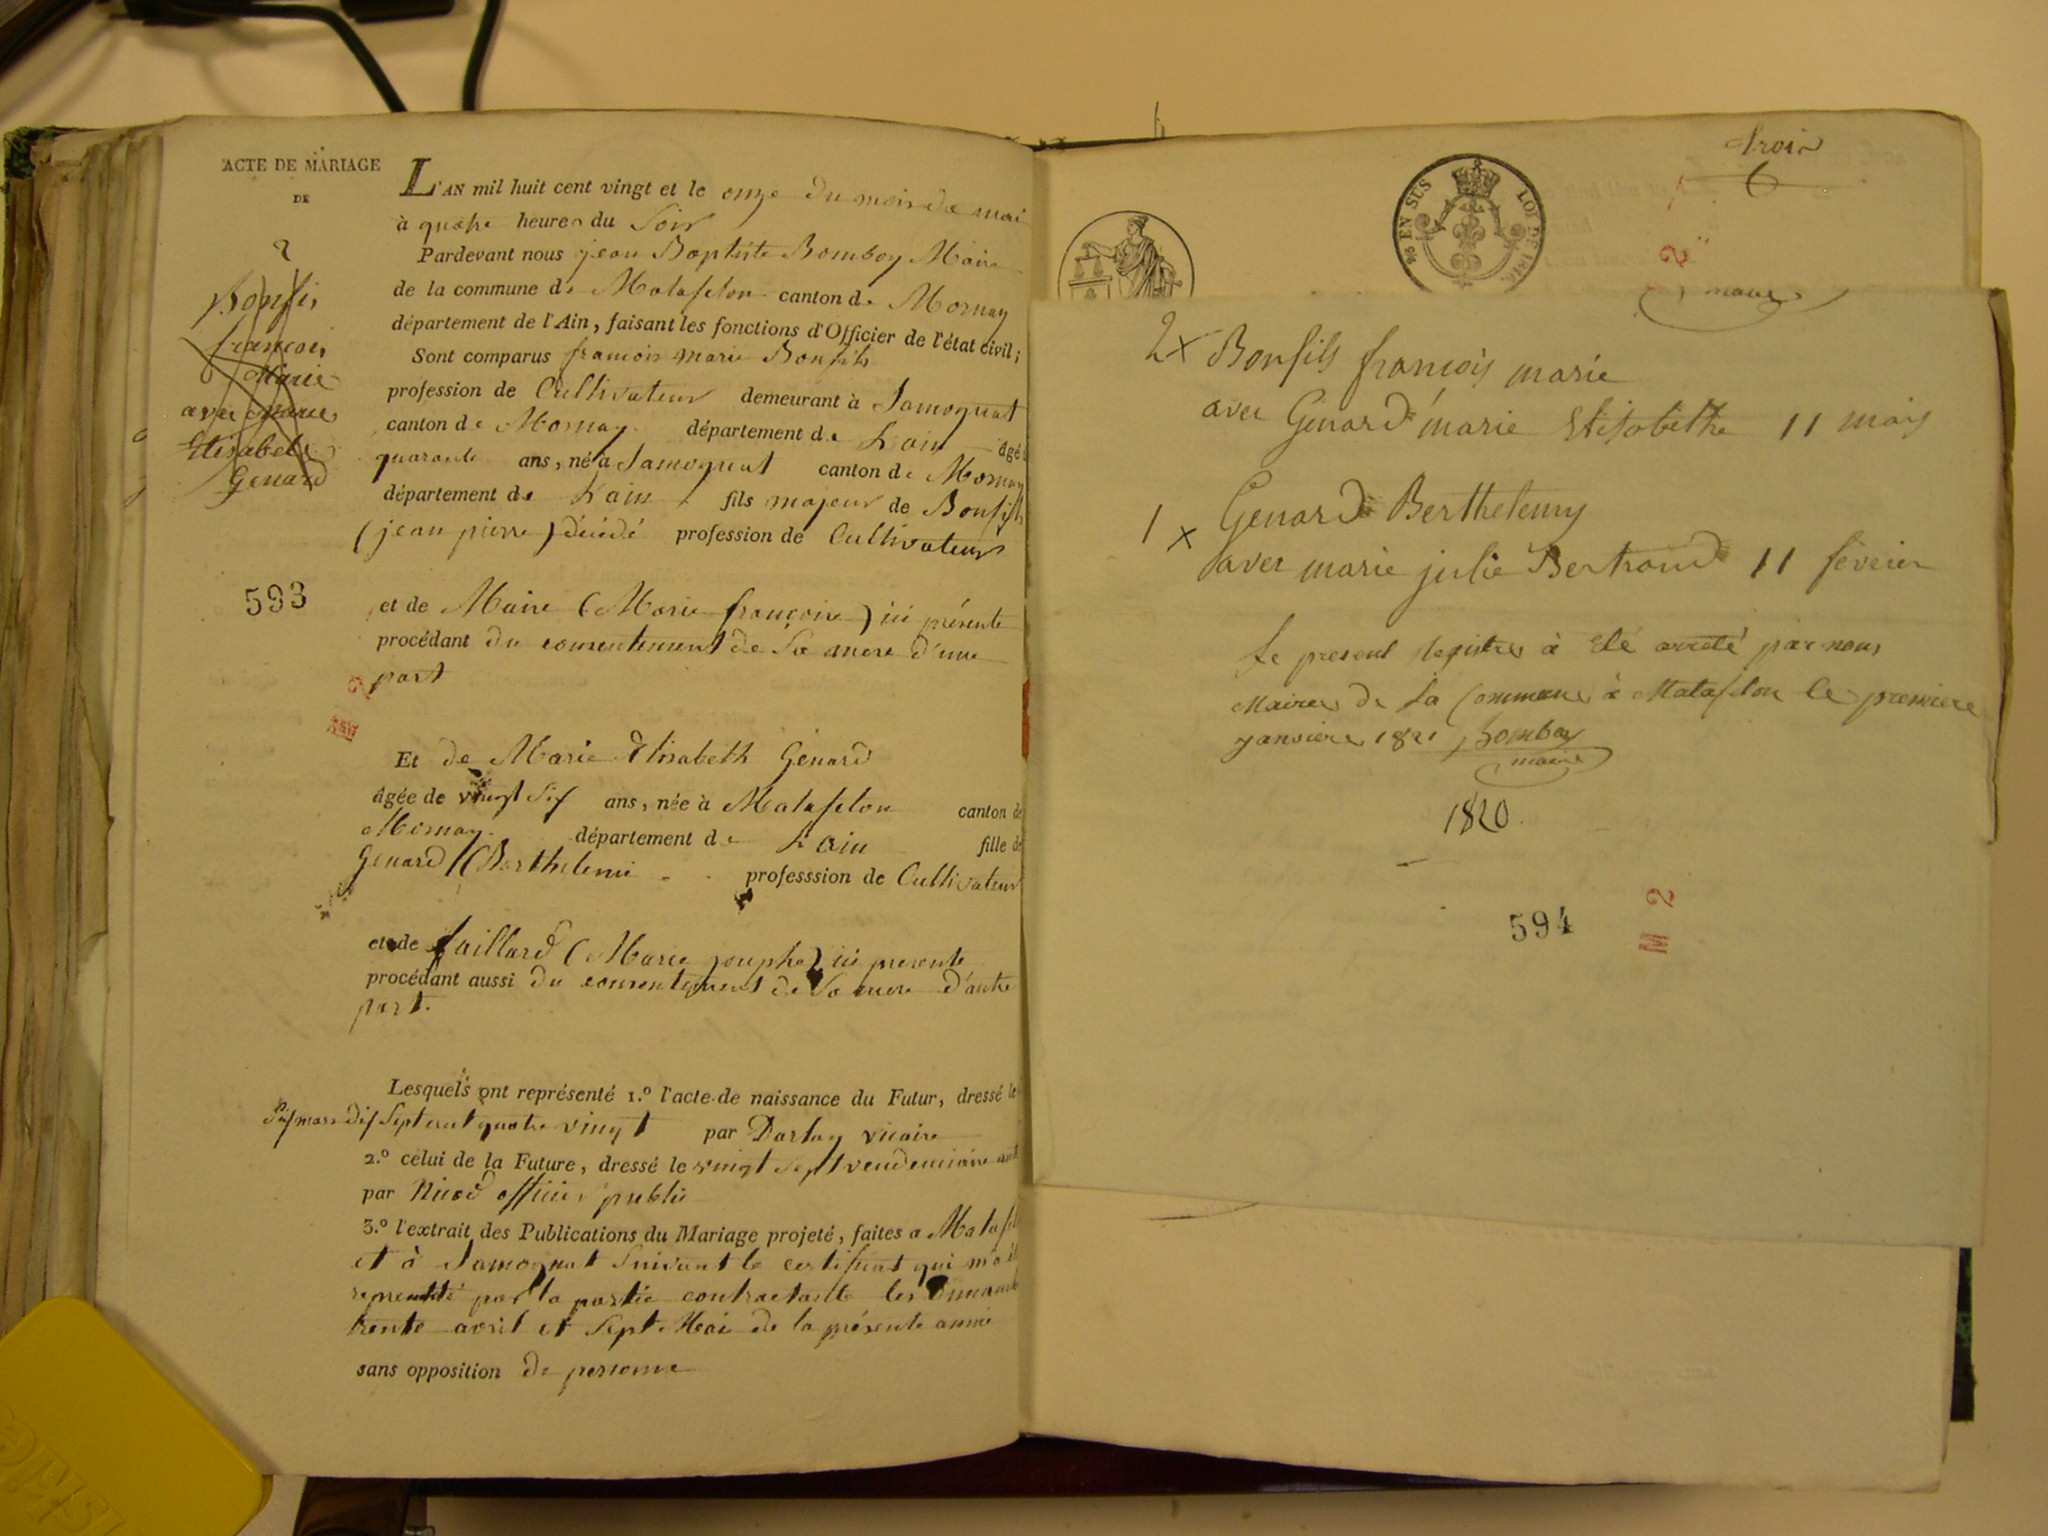 ACTE DE MARIAGE
DE
2
Bonfils
françois
Marie
avec Marie
Elisabeth
Genard
593
L'AN mil huit cent vingt et le onze du mois de mai
à quatre heures du Soir
Pardevant nous jean Baptiste Bomboy Maire
de la commune de Matafelon canton de Mornay
département de l'Ain, faisant les fonctions d'Officier de l'état civil;
Sont comparus francois marie Bonfils
profession de Cultivateur demeurant à Samognat
canton de Mornay département de L'ain âgé
quarante ans, né à Samognat canton de Mornay
département de L'ain fils majeur de Bonfils
(jean pierre) décédé profession de Cultivateur
et de Maire (Marie françoise) ici présente
procédant du consentement de Sa mere d'une
part
Et de Marie Elisabeth Génard
âgée de vingt Six ans, née à Matafelon canton de
Mornay département de L'ain fille de
Genard (Barthelemi professsion de Cultivateur
et de faillard (Marie josephe) ici presente
procédant aussi du consentement de Sa mere d'autre
part.
Lesquels ont représenté 1.º l'acte de naissance du Futur, dressé le
Six mars dix Sept cent quatre vingt par Darlay vicaire
2.º celui de la Future, dressé le vingt Sept vendemiaire
par Nicod officier public
3.º l'extrait des Publications du Mariage projeté, faites a Matafel
et à Samognat Suivant le certificat qui m'a été
représenté par la partie contractante les Dimanche
trente avril et Sept Mai de la présente année
sans opposition de personne
trois
6
EN SUS LOI DE 1816
maire
2 x Bonfils françois marie
avec Genard marie Elisabethe 11 mais
1 x Genard Berthelemy
avec marie julie Bertrand 11 féveier
Le present Registres à Eté arreté par nous
Maires de La Commune à Matafelon le premiere
janviere 1821 Bomboy
maire
1820
594
2